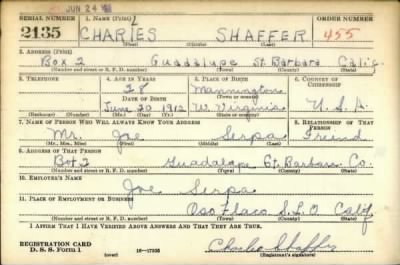 JUN 24
SERIAL NUMBER 1. NAME (Print) ORDER NUMBER (Print)
2135 CHARLES L SHAFFER 455
(First) (Middle) (Last)
2. ADDRESS (Print)
Box 2 Guadalupe St. Barbara Calif.
(Number and street or R. F. D. number) (Town) (County) (State)
3. TELEPHONE 4. AGE IN YEARS 5. PLACE OF BIRTH 6. COUNTRY OF CITIZENSHIP
28 Mannington
DATE OF BIRTH (Town or county)
June 20 1912 W. Virginia U.S.A.
(Exchange) (Number) (Mo.) (Day) (Yr.) (State or country)
7. NAME OF PERSON WHO WILL ALWAYS KNOW YOUR ADDRESS 8. RELATIONSHIP OF THAT PERSON
Mr. Joe Serpa Friend
(Mr., Mrs., Miss) (First) (Middle) (Last)
9. ADDRESS OF THAT PERSON
Box 2 Guadalupe St. Barbara Co.
(Number and street or R. F. D. number) (Town) (County) (State)
10. EMPLOYER'S NAME
Joe Serpa
11. PLACE OF EMPLOYMENT OR BUSINESS
Oso Flaco S.L.O Calif
(Number and street or R. F. D. number) (Town) (County) (State)
I AFFIRM THAT I HAVE VERIFIED ABOVE ANSWERS AND THAT THEY ARE TRUE.
REGISTRATION CARD
D. S. S. Form 1 16-17105 Charles Shaffer
(over) (Registrant's signature)